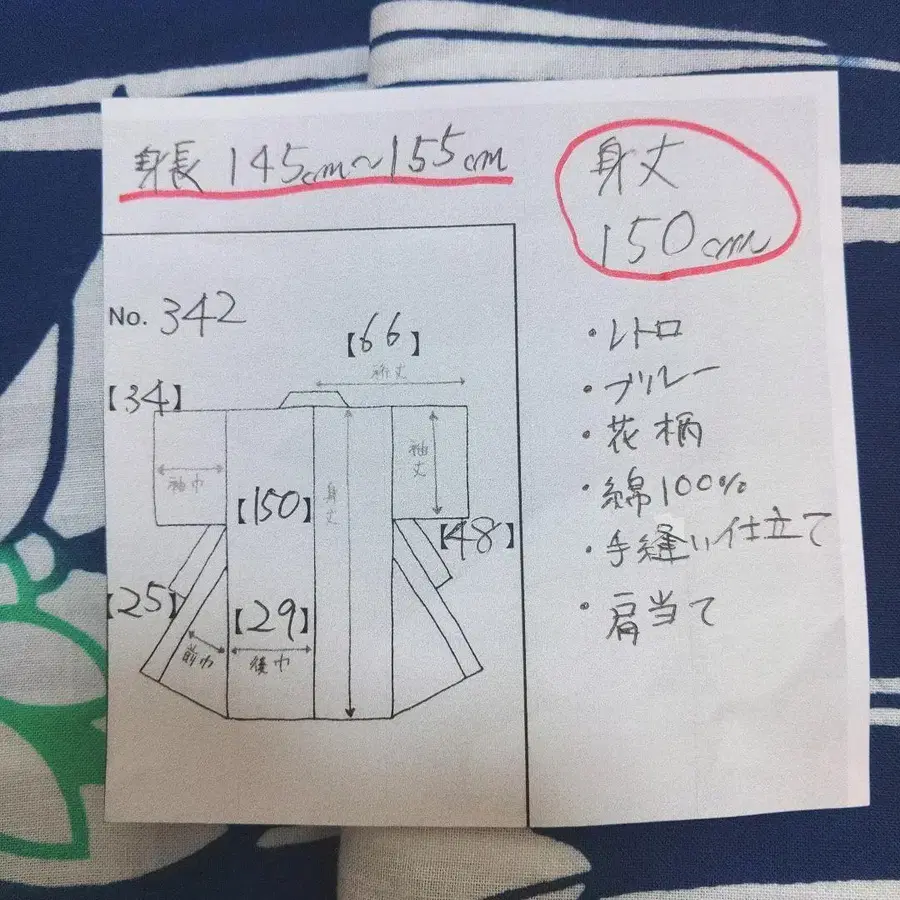 身長 145cm〜155cm
身丈
150cm
No. 342
【66】
裄丈
【34】
袖巾
袖丈
【150】
身丈
【48】
【25】
【29】
前巾
後巾
・レトロ
・ブルー
・花柄
・綿100%
・手縫い仕立て
・肩当て